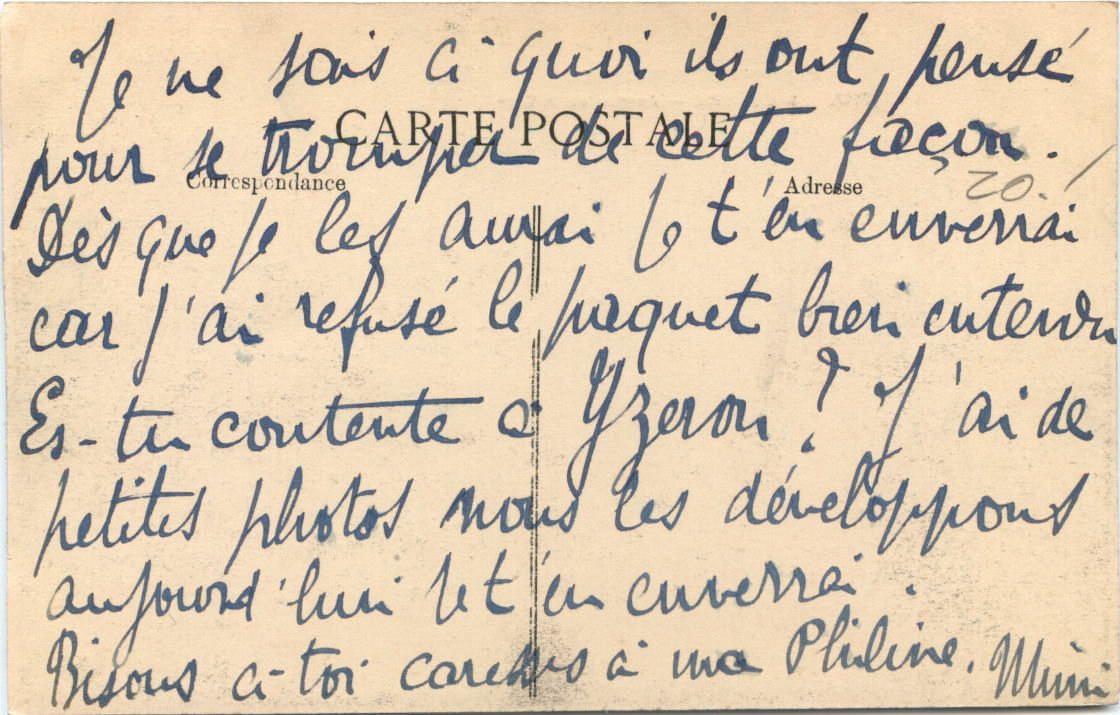 Je ne sais à quoi ils ont pensé
CARTE POSTALE
pour se tromper de cette façon.
Correspondance
Adresse
20.
Dès que je les aurai je t'en enverrai
car j'ai refusé le paquet bien entendu
Es-tu contente à Yzeron? J'ai de
petites photos nous les développons
aujourd'hui je t'en enverrai.
Bisous à toi caresses à ma Philine. Mimi